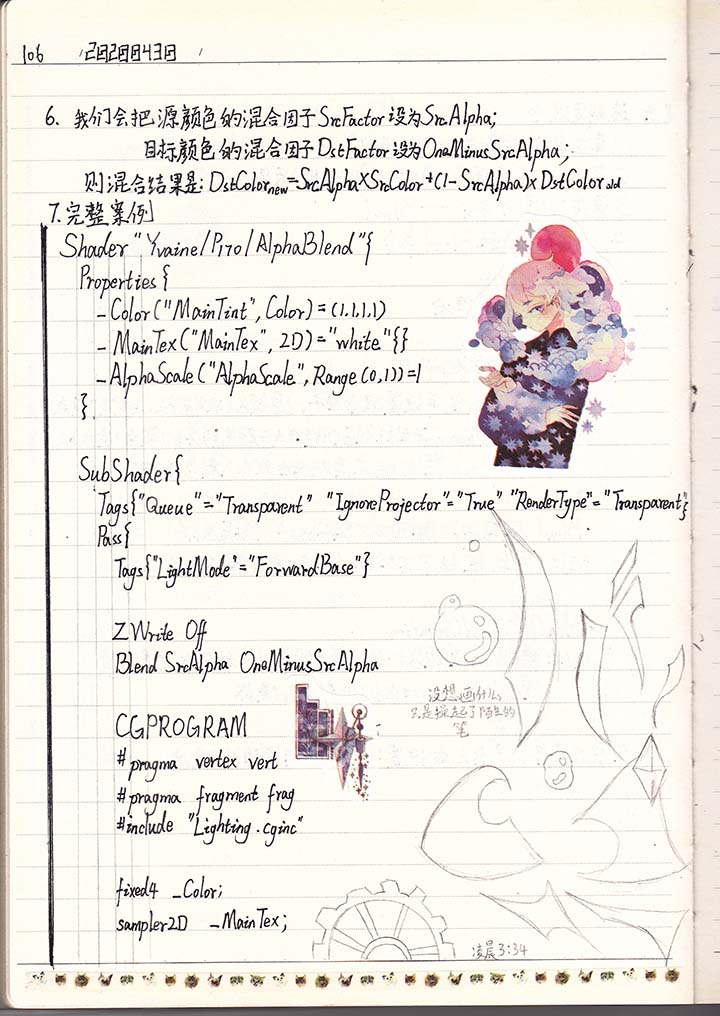 106
6. 我们会把源颜色的混合因子SrcFactor设为SrcAlpha;
目标颜色的混合因子DstFactor设为OneMinusSrcAlpha;
则混合结果是: DstColornew=SrcAlpha×SrcColor+(1-SrcAlpha)×DstColorold
7.完整案例
Shader "Yvaine/P170/AlphaBlend"{
Properties{
_Color("MainTint", Color)=(1.1.1.1)
_MainTex("MainTex", 2D)="white"{}
_AlphaScale("AlphaScale", Range(0,1))=1
}
SubShader{
Tags{"Queue"="Transparent" "IgnoreProjector"="True" "RenderType"="Transparent"}
Pass{
Tags{"LightMode"="ForwardBase"}
ZWrite Off
Blend SrcAlpha OneMinusSrcAlpha
没想画什么
只是操起了陌生的
笔
CGPROGRAM
#pragma vertex vert
#pragma fragment frag
#include "Lighting.cginc"
fixed4 _Color;
sampler2D _MainTex;
凌晨3:34